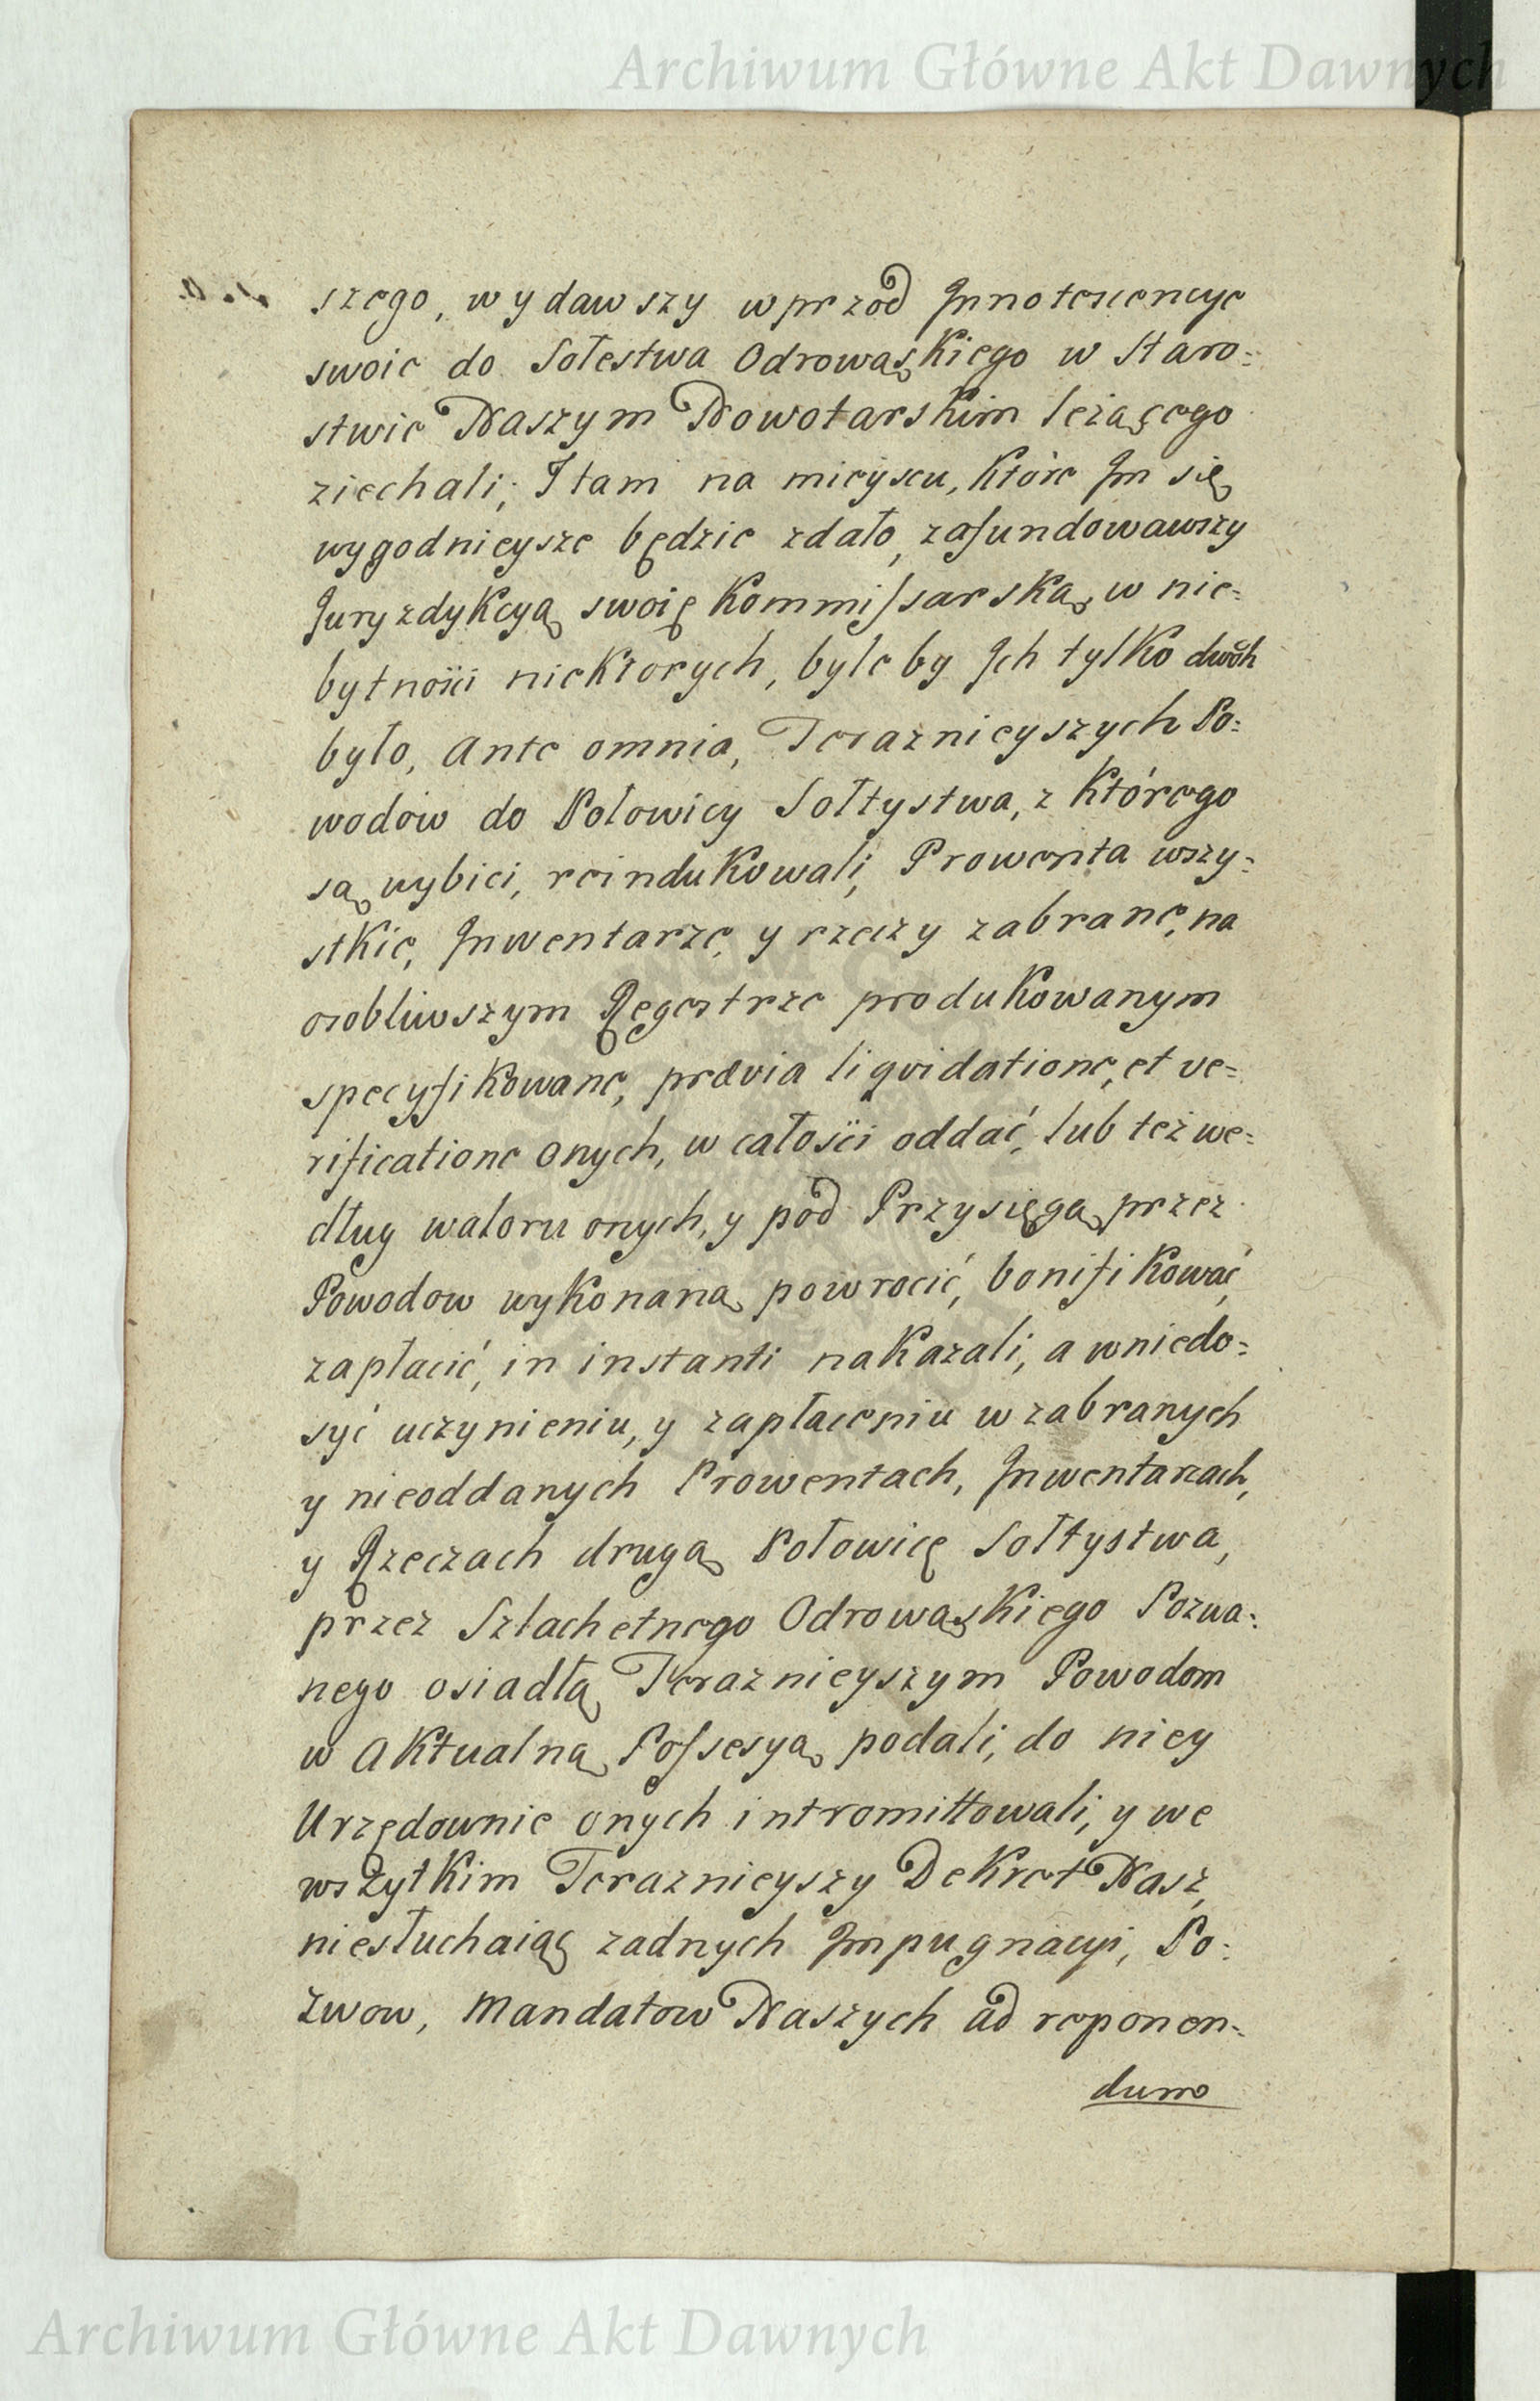 Archiwum Główne Akt Dawnych
szego, wydawszy wprzod Innotescencye
swoie do Sołestwa Odrowąskiego w Staro=
stwie Naszym Nowotarskim leżącego
ziechali; I tam na mieyscu, które Im się
wygodnieysze będzie zdało, zafundowawszy
Juryzdykcyą swoię Kommissarską, w nie=
bytności niektorych, byle by Ich tylko dwóh
było, Ante omnia, Teraznieyszych Po=
wodów do Połowicy Sołtystwa, z którego
są wybici, reindukowali, Prowenta wszy=
stkie, Inwentarze, y rzeczy zabrane, na
osobliwszym Regestrze produkowanym
specyfikowane, prævia liqvidatione, et ve=
rificatione onych, w całości oddać, lub też we=
dług waloru onych, y pod Przysięgą przez
Powodow wykonaną powrocić, bonifikować,
zapłacić, in instanti nakazali, a wniedo=
syć uczynieniu, y zapłaceniu w zabranych
y nieoddanych Prowentach, Inwentarzach,
y Rzeczach drugą Połowicę Sołtystwa,
przez Szlachetnego Odrowąskiego Pozwa=
nego osiadłą Teraznieyszym Powodom
w Aktualną Possesyą podali, do niey
Urzędownie onych intromittowali, y we
wszytkim Teraznieyszy Dekret Nasz,
niesłuchaiąc zadnych Impugnacyi, Po=
zwow, Mandatow Naszych ad reponen=
dum
Archiwum Główne Akt Dawnych